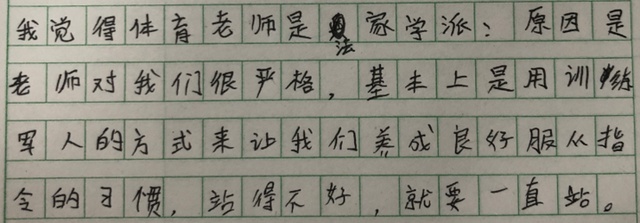 我觉得体育老师是法家学派：原因是
老师对我们很严格，基本上是用训练
军人的方式来让我们养成良好服从指
令的习惯，站得不好，就要一直站。